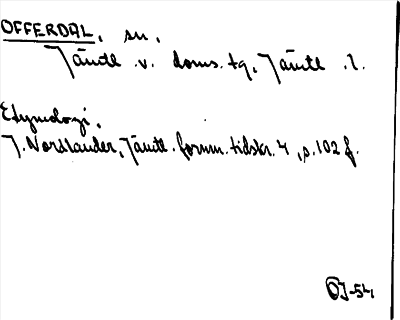 OFFERDAL, sn.
Jämtl. v. doms. tg, Jämtl. l.
Etymologi.
J. Nordlander, Jämtl. fornm. tidskr. 4, s. 102 f.
OJ-54